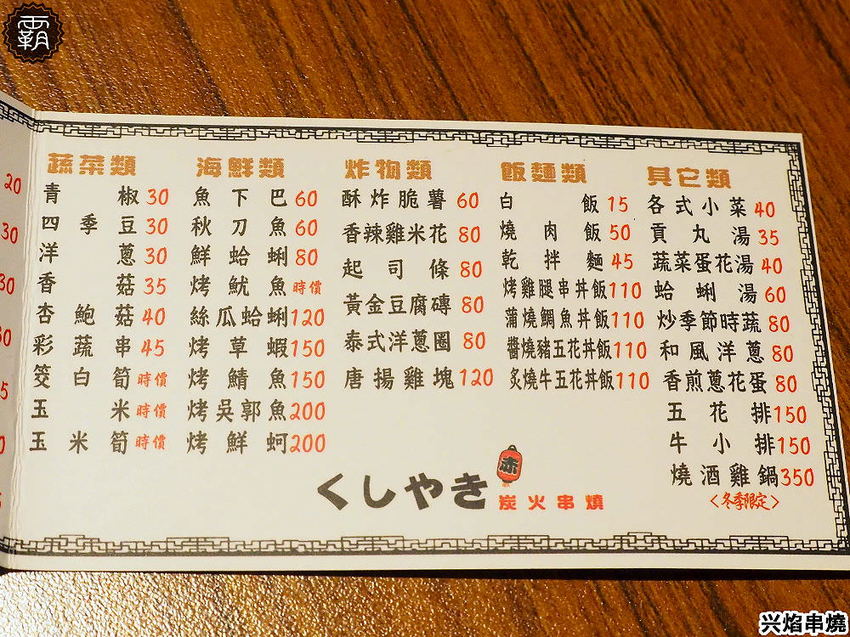 霸
20
30
30
蔬菜類
青椒 30
四季豆 30
洋蔥 30
香菇 35
杏鮑菇 40
彩蔬串 45
筊白筍 時價
玉米 時價
玉米筍 時價
海鮮類
魚下巴 60
秋刀魚 60
鮮蛤蜊 80
烤魷魚 時價
絲瓜蛤蜊 120
烤草蝦 150
烤鯖魚 150
烤吳郭魚 200
烤鮮蚵 200
炸物類
酥炸脆薯 60
香辣雞米花 80
起司條 80
黃金豆腐磚 80
泰式洋蔥圈 80
唐揚雞塊 120
飯麵類
白飯 15
燒肉飯 50
乾拌麵 45
烤雞腿串丼飯 110
蒲燒鯛魚丼飯 110
醬燒豬五花丼飯 110
炙燒牛五花丼飯 110
其它類
各式小菜 40
貢丸湯 35
蔬菜蛋花湯 40
蛤蜊湯 60
炒季節時蔬 80
和風洋蔥 80
香煎蔥花蛋 80
五花排 150
牛小排 150
燒酒雞鍋 350
<冬季限定>
くしやき
赤
炭火串燒
兴焰串燒